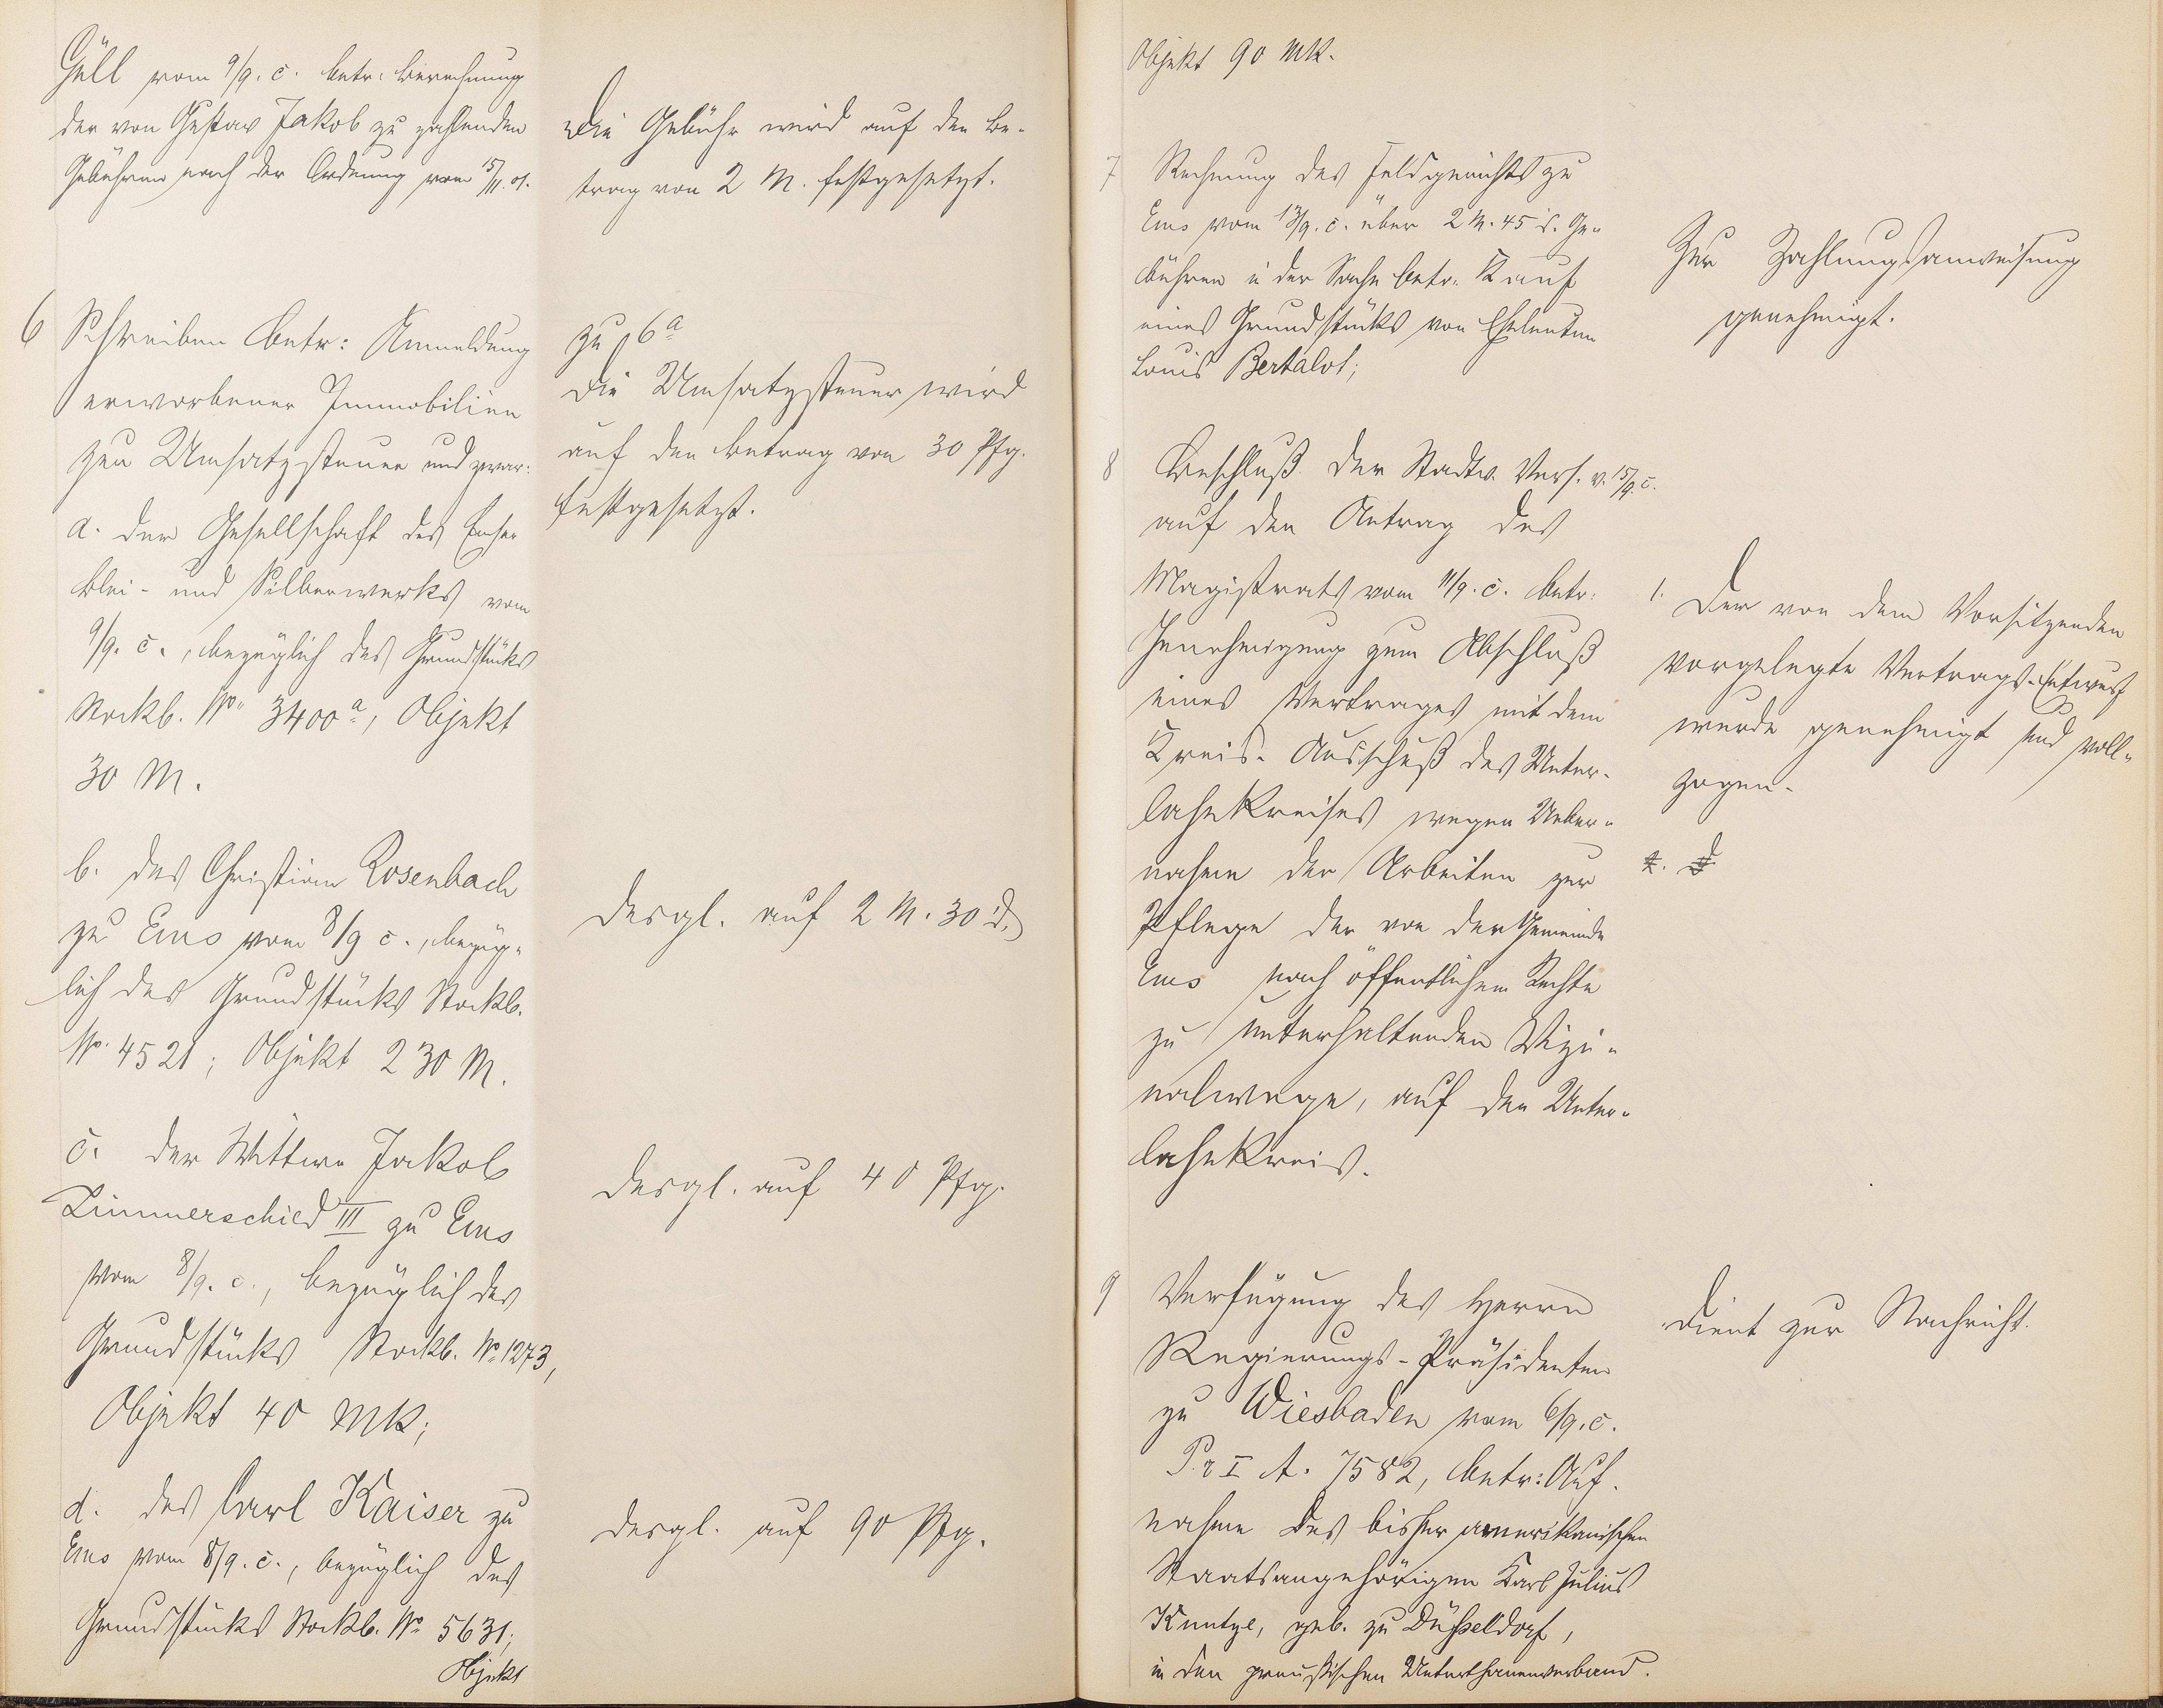 Güll vom 9/9. c. betr. Berechnung
der von Gustav Jakob zu zahlenden
Gebühren nach der Ordnung vom 15/11. 01.
Die Gebühr wird auf den Be-
trag von 2 M. festgesetzt.
6 Schreiben betr: Anmeldung
erworbener Immobilien
zur Umsatzsteuer und zwar:
a. der Gesellschaft des Emser
Blei- und Silberwerks vom
9/9. c., bezüglich des Grundstücks
Stockb. No. 3400a, Objekt
30 M.
zu 6a
Die Umsatzsteuer wird
auf den Betrag von 30 Pfg.
festgesetzt.
b. des Christian Rosenbach
zu Ems vom 8/9 c., bezüg-
lich des Grundstücks Stockb.
No. 4521; Objekt 230 M.
desgl. auf 2 M. 30 d.
c. der Wittwe Jakob
Linnerschied III zu Ems
vom 8/9. c., bezüglich des
Grundstücks Stockb. No. 1273,
Objekt 40 MK;
desgl. auf 40 Pfg.
d. des Carl Kaiser zu
Ems vom 8/9. c., bezüglich des
Grundstücks Stockb. No. 5631;
Objekt
desgl. auf 90 Pfg.
Objekt 90 MK.
7 Rechnung des Feldgerichts zu
Ems vom 13/9. c. über 2 M. 45 d. Ge-
bühren in der Sache betr. Kauf
eines Grundstücks von Eheleuten
Louis Bertalot;
Zur Zahlungsanweisung
genehmigt.
8 Beschluß der Stadtv. Vers. v. 15/9. c.
auf den Antrag des
Magistrats vom 11/9. c. betr.
Genehmigung zum Abschluß
eines Vertrages mit dem
Kreis-Ausschuß des Unter-
lahnkreises wegen Ueber-
nahme der Arbeiten zur
Pflege der von der Gemeinde
Ems nach öffentlichem Rechte
zu unterhaltenden Vizi-
nalwege, auf den Unter-
lahnkreis.
1. Der von dem Vorsitzenden
vorgelegte Vertrags-Entwurf
wurde genehmigt und voll-
zogen.
9 Verfügung des Herrn
Regierungs-Präsidenten
zu Wiesbaden vom 6/9. c.
Pr I A. 7582, betr: Auf-
nahme des bisher amerikanischen
Staatsangehörigen Karl Julius
Kuntze, geb. zu Düsseldorf,
in den preußischen Unterthanenverband.
Dient zur Nachricht.